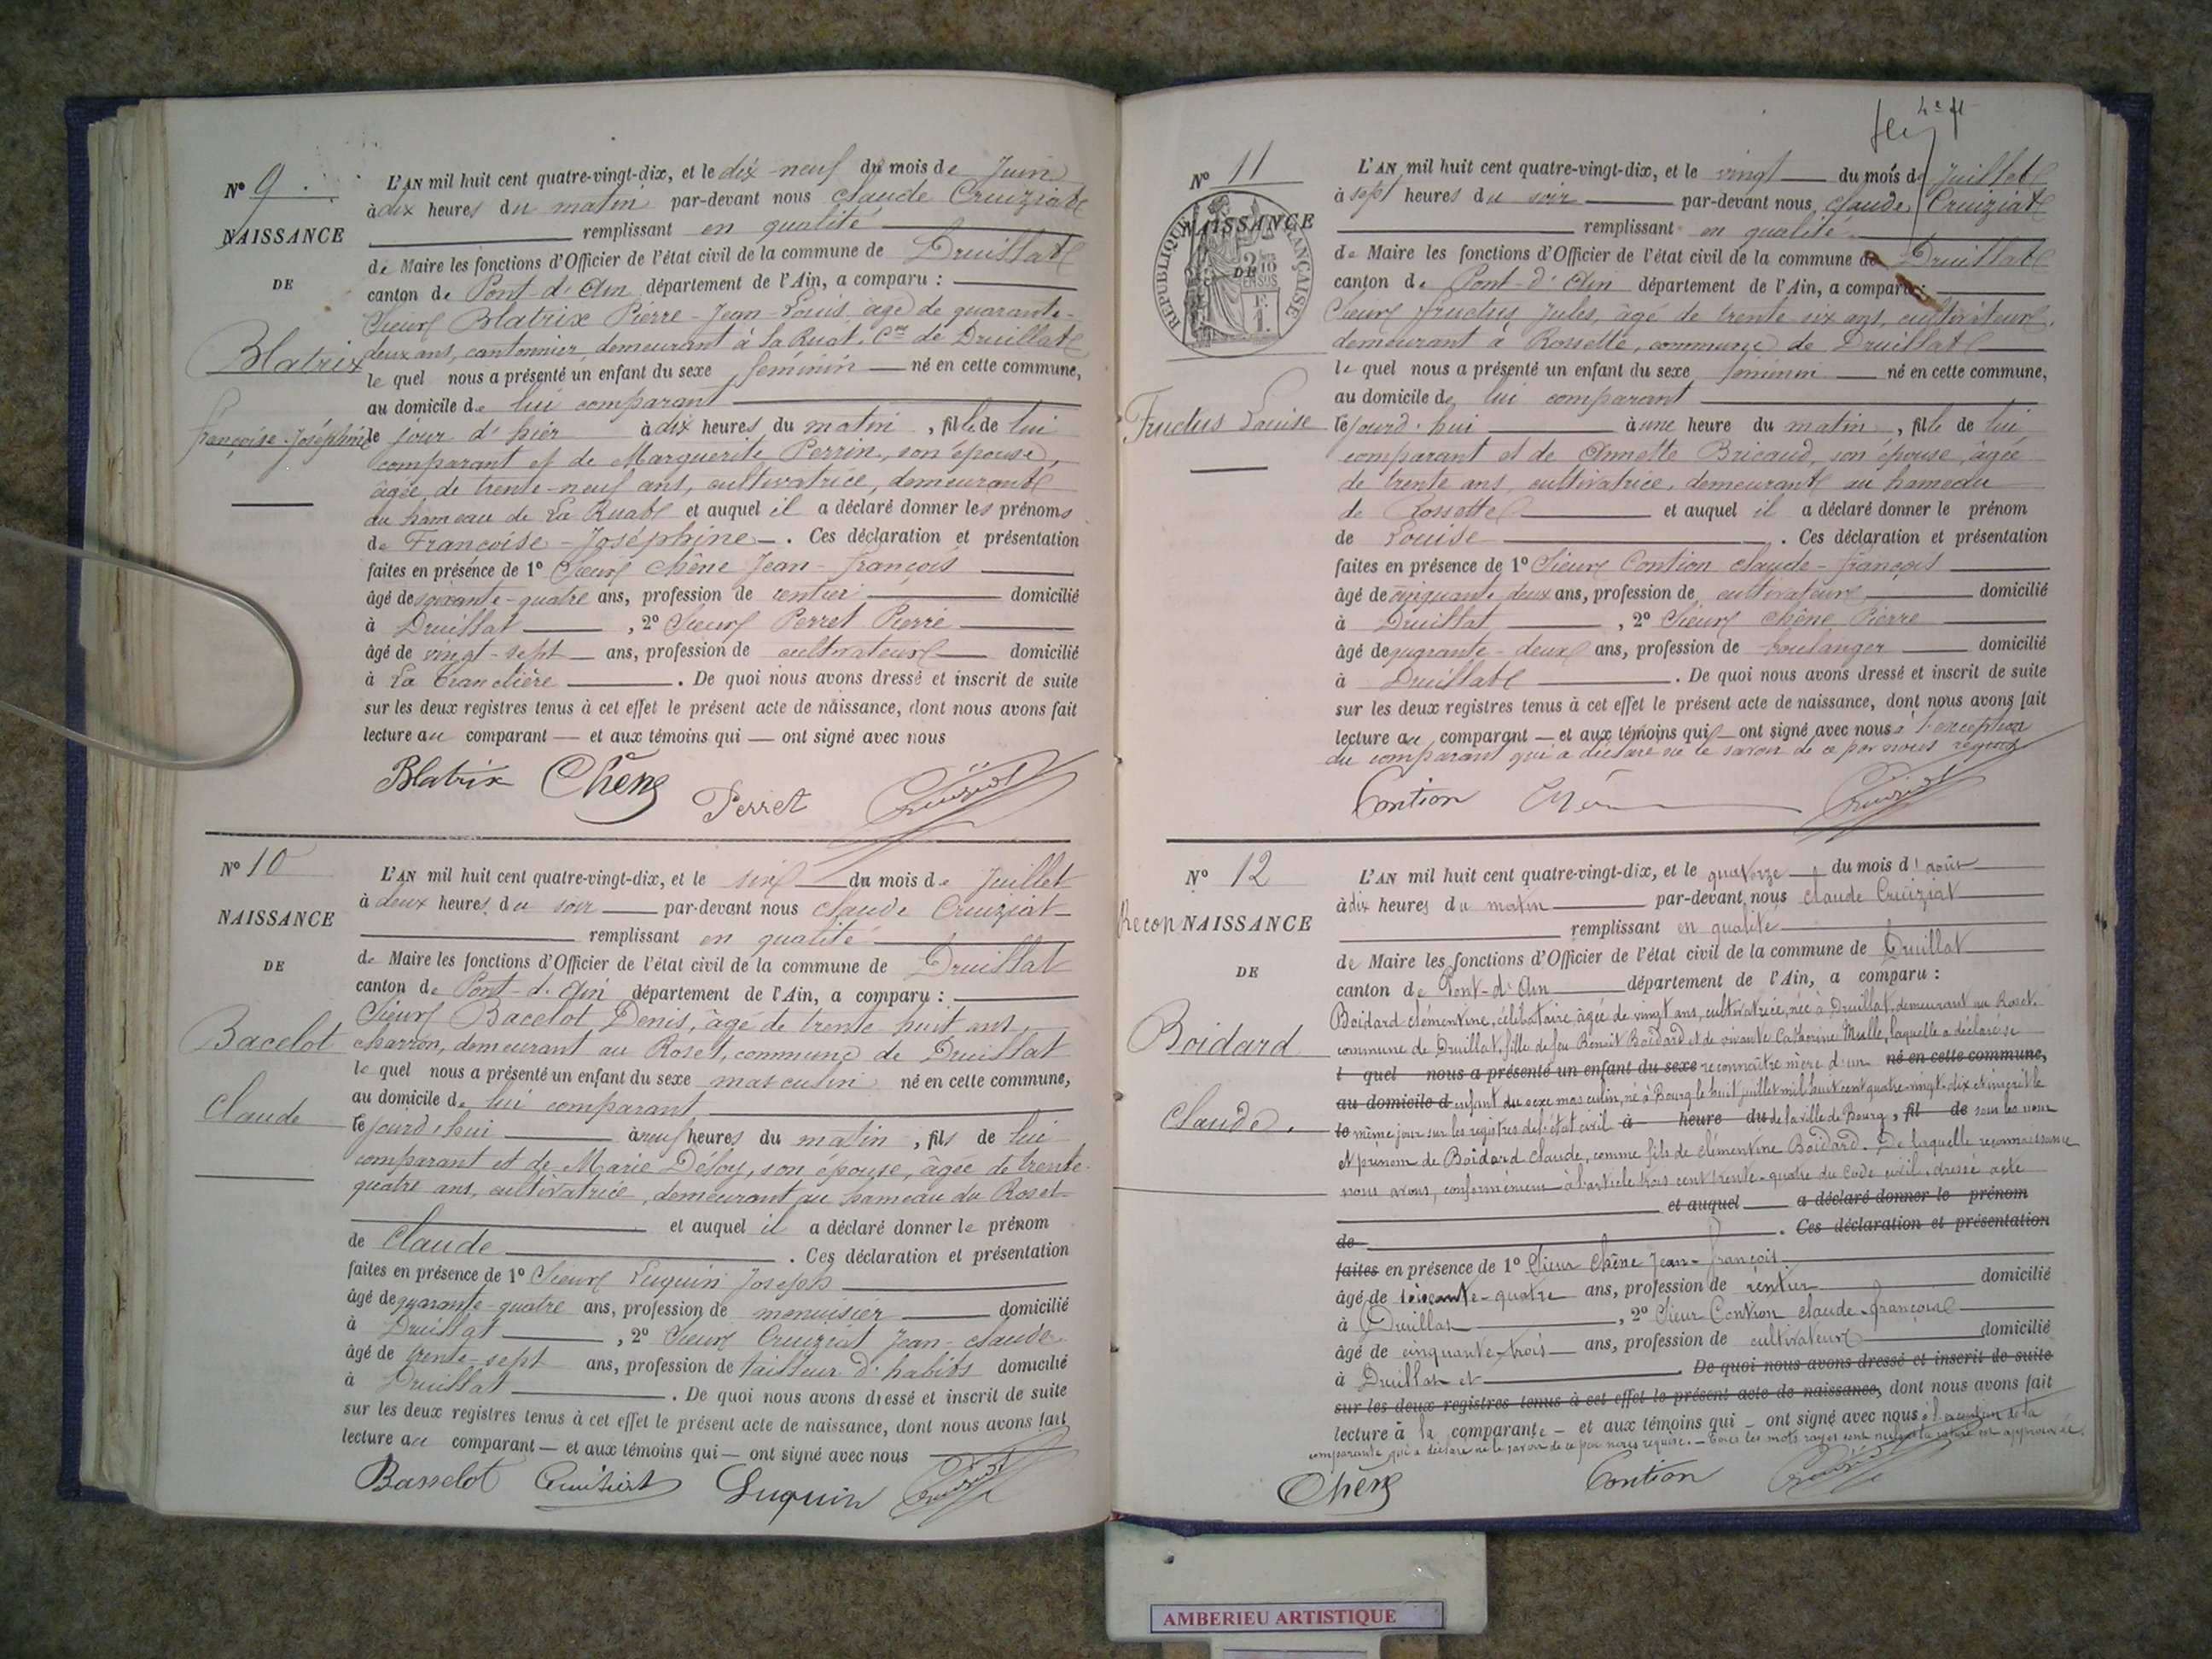 N° 9
NAISSANCE
DE
Blatrix
Françoise-Joséphine
L'AN mil huit cent quatre-vingt-dix, et le dix-neuf du mois de Juin
à dix heures du matin par-devant nous Claude Cruiziat
remplissant en qualité
de Maire les fonctions d'Officier de l'état civil de la commune de Druillat
canton de Pont-d'Ain département de l'Ain, a comparu :
Sieur Blatrix Pierre-Jean-Louis, âgé de quarante-
deux ans, cantonnier, demeurant à la Ruat, Cne de Druillat
le quel nous a présenté un enfant du sexe féminin né en cette commune,
au domicile de lui comparant
le jour d'hier à dix heures du matin, fille de lui
comparant et de Marguerite Perrin, son épouse,
âgée de trente-neuf ans, cultivatrice, demeurant
au hameau de La Ruat et auquel il a déclaré donner les prénoms
de Françoise-Joséphine. Ces déclaration et présentation
faites en présence de 1° Sieur Chêne Jean-François
âgé de soixante-quatre ans, profession de rentier domicilié
à Druillat, 2° Sieur Perret Pierre
âgé de vingt-sept ans, profession de cultivateur domicilié
à La Tranclière. De quoi nous avons dressé et inscrit de suite
sur les deux registres tenus à cet effet le présent acte de naissance, dont nous avons fait
lecture au comparant — et aux témoins qui — ont signé avec nous
Blatrix Chêne Perret Cruiziat
N° 10
NAISSANCE
DE
Bacelot
Claude
L'AN mil huit cent quatre-vingt-dix, et le six du mois de Juillet
à deux heures du soir par-devant nous Claude Cruiziat
remplissant en qualité
de Maire les fonctions d'Officier de l'état civil de la commune de Druillat
canton de Pont-d'Ain département de l'Ain, a comparu :
Sieur Bacelot Denis, âgé de trente huit ans,
charron, demeurant au Roset, commune de Druillat
le quel nous a présenté un enfant du sexe masculin né en cette commune,
au domicile de lui comparant
cejourd'hui à neuf heures du matin, fils de lui
comparant et de Marie Déloy, son épouse, âgée de trente-
quatre ans, cultivatrice, demeurant au hameau du Roset
et auquel il a déclaré donner le prénom
de Claude. Ces déclaration et présentation
faites en présence de 1° Sieur Luquin Joseph
âgé de quarante-quatre ans, profession de menuisier domicilié
à Druillat, 2° Sieur Cruiziat Jean-Claude
âgé de trente-sept ans, profession de tailleur d'habits domicilié
à Druillat. De quoi nous avons dressé et inscrit de suite
sur les deux registres tenus à cet effet le présent acte de naissance, dont nous avons fait
lecture au comparant — et aux témoins qui — ont signé avec nous
Basselot Cruiziat Luquin Cruiziat
N° 11
NAISSANCE
DE
RÉPUBLIQUE FRANÇAISE
Fructus Louise
L'AN mil huit cent quatre-vingt-dix, et le vingt du mois de Juillet
à sept heures du soir par-devant nous Claude Cruiziat
remplissant en qualité
de Maire les fonctions d'Officier de l'état civil de la commune de Druillat
canton de Pont-d'Ain département de l'Ain, a comparu :
Sieur Fructus Jules, âgé de trente six ans, cultivateur,
demeurant à Rossette, commune de Druillat
le quel nous a présenté un enfant du sexe féminin né en cette commune,
au domicile de lui comparant
cejourd'hui à une heure du matin, fille de lui
comparant et de Annette Bricaud, son épouse, âgée
de trente ans, cultivatrice, demeurant au hameau
de Rossette et auquel il a déclaré donner le prénom
de Louise. Ces déclaration et présentation
faites en présence de 1° Sieur Contion Claude-François
âgé de cinquante deux ans, profession de cultivateur domicilié
à Druillat, 2° Sieur Chêne Pierre
âgé de quarante-deux ans, profession de boulanger domicilié
à Druillat. De quoi nous avons dressé et inscrit de suite
sur les deux registres tenus à cet effet le présent acte de naissance, dont nous avons fait
lecture au comparant — et aux témoins qui — ont signé avec nous à l'exception
du comparant qui a déclaré ne le savoir de ce par nous requis
Contion Chêne Cruiziat
N° 12
Recon NAISSANCE
DE
Boidard
Claude.
L'AN mil huit cent quatre-vingt-dix, et le quatorze du mois d'août
à dix heures du matin par-devant nous Claude Cruiziat
remplissant en qualité
de Maire les fonctions d'Officier de l'état civil de la commune de Druillat
canton de Pont-d'Ain département de l'Ain, a comparu :
Boidard Clémentine, célibataire, âgée de vingt ans, cultivatrice, née à Druillat, demeurant au Roset,
commune de Druillat, fille de feu Benoit Boidard et de vivante Catherine Mulle, laquelle a déclaré se
l quel nous a présenté un enfant du sexe reconnaître mère d'un né en cette commune,
au domicile d enfant du sexe masculin, né à Bourg le huit juillet mil huit cent quatre-vingt-dix et inscrit le
le même jour sur les registres de l'état civil à heure du de la ville de Bourg, fil de sous les nom
et prénom de Boidard Claude, comme fils de Clémentine Boidard. De laquelle reconnaissance
nous avons, conformément à l'article trois cent trente-quatre du Code civil, dressé acte
et auquel a déclaré donner le prénom
de . Ces déclaration et présentation
faites en présence de 1° Sieur Chêne Jean-François
âgé de soixante-quatre ans, profession de rentier domicilié
à Druillat, 2° Sieur Contion Claude-François
âgé de cinquante-trois ans, profession de cultivateur domicilié
à Druillat et . De quoi nous avons dressé et inscrit de suite
sur les deux registres tenus à cet effet le présent acte de naissance, dont nous avons fait
lecture à la comparante — et aux témoins qui — ont signé avec nous à l'exception de la
comparante qui a déclaré ne le savoir de ce par nous requise. — Tous les mots rayés sont nuls
Chêne Contion Cruiziat
AMBERIEU ARTISTIQUE